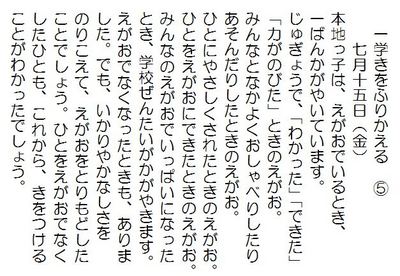 一学きをふりかえる　⑤
七月十五日（金）
本地っ子は、えがおでいるとき、
一ばんかがやいています。
じゅぎょうで、「わかった」「できた」
「力がのびた」ときのえがお。
みんなとなかよくおしゃべりしたり
あそんだりしたときのえがお。
ひとにやさしくされたときのえがお。
ひとをえがおにできたときのえがお。
みんなのえがおでいっぱいになった
とき、学校ぜんたいがかがやきます。
えがおでなくなったときも、ありま
した。でも、いかりやかなしさを
のりこえて、えがおをとりもどした
ことでしょう。ひとをえがおでなく
したひとも、これから、きをつける
ことがわかったでしょう。